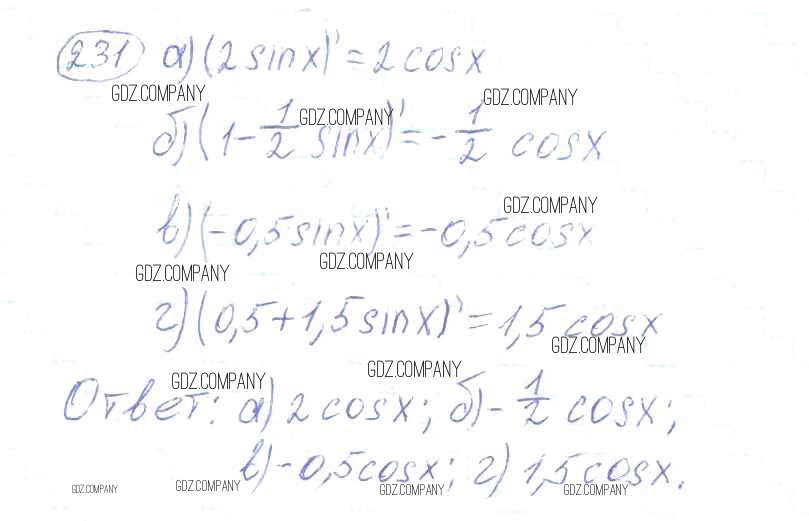 231 а) (2 sinx)' = 2 cosx
GDZ.COMPANY GDZ.COMPANY GDZ.COMPANY
б) (1 - 1/2 sinx)' = - 1/2 cosx
GDZ.COMPANY
в) (-0,5 sinx)' = -0,5 cosx
GDZ.COMPANY GDZ.COMPANY
г) (0,5 + 1,5 sinx)' = 1,5 cosx
GDZ.COMPANY
GDZ.COMPANY GDZ.COMPANY
Ответ: а) 2 cosx; б) - 1/2 cosx;
в) -0,5 cosx; г) 1,5 cosx.
GDZ.COMPANY GDZ.COMPANY GDZ.COMPANY GDZ.COMPANY